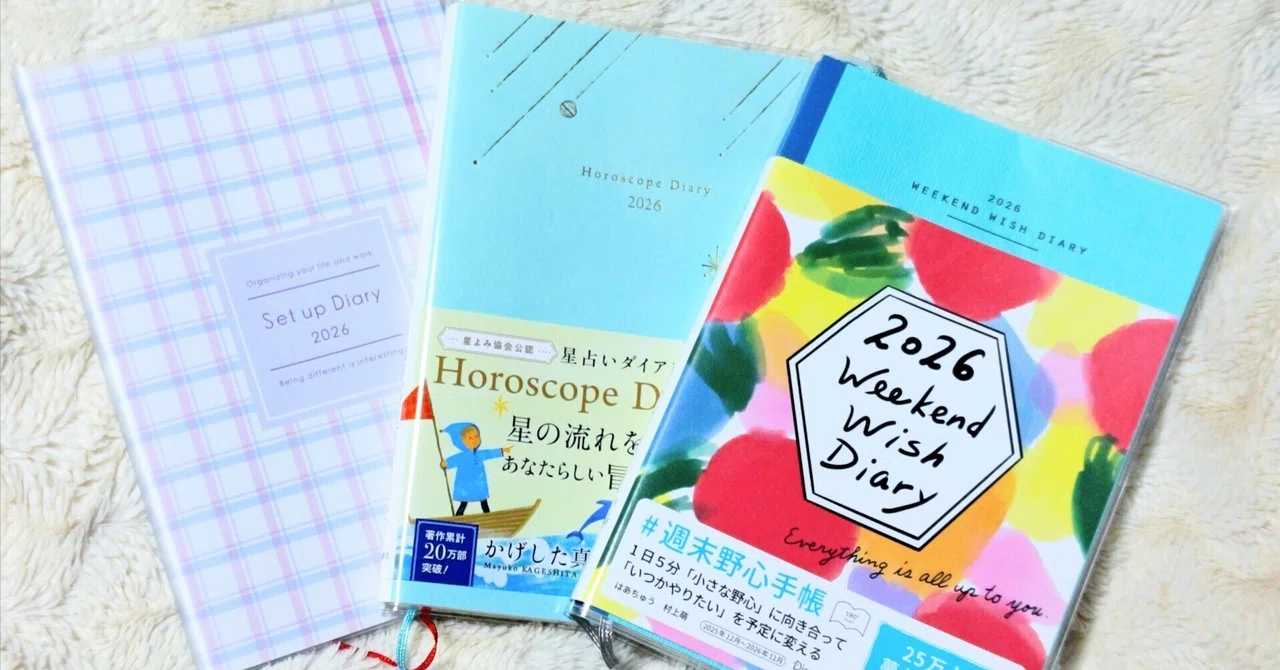 Organizing your life and work.
Set up Diary
2026
Being different is interesting.
Horoscope Diary
2026
星よみ協会公認
星占いダイア
Horoscope D
星の流れを
あなたらしい
著作累計
20万部
突破!
かげした真
Mayuko KAGESHITA
2026
WEEKEND WISH DIARY
2026
Weekend
Wish
Diary
Everything is all up to you.
#週末野心手帳
1日5分「小さな野心」に向き合って
「いつかやりたい」を予定に変える
はあちゅう 村上萌
2025年12月〜2026年11月
180°
25万